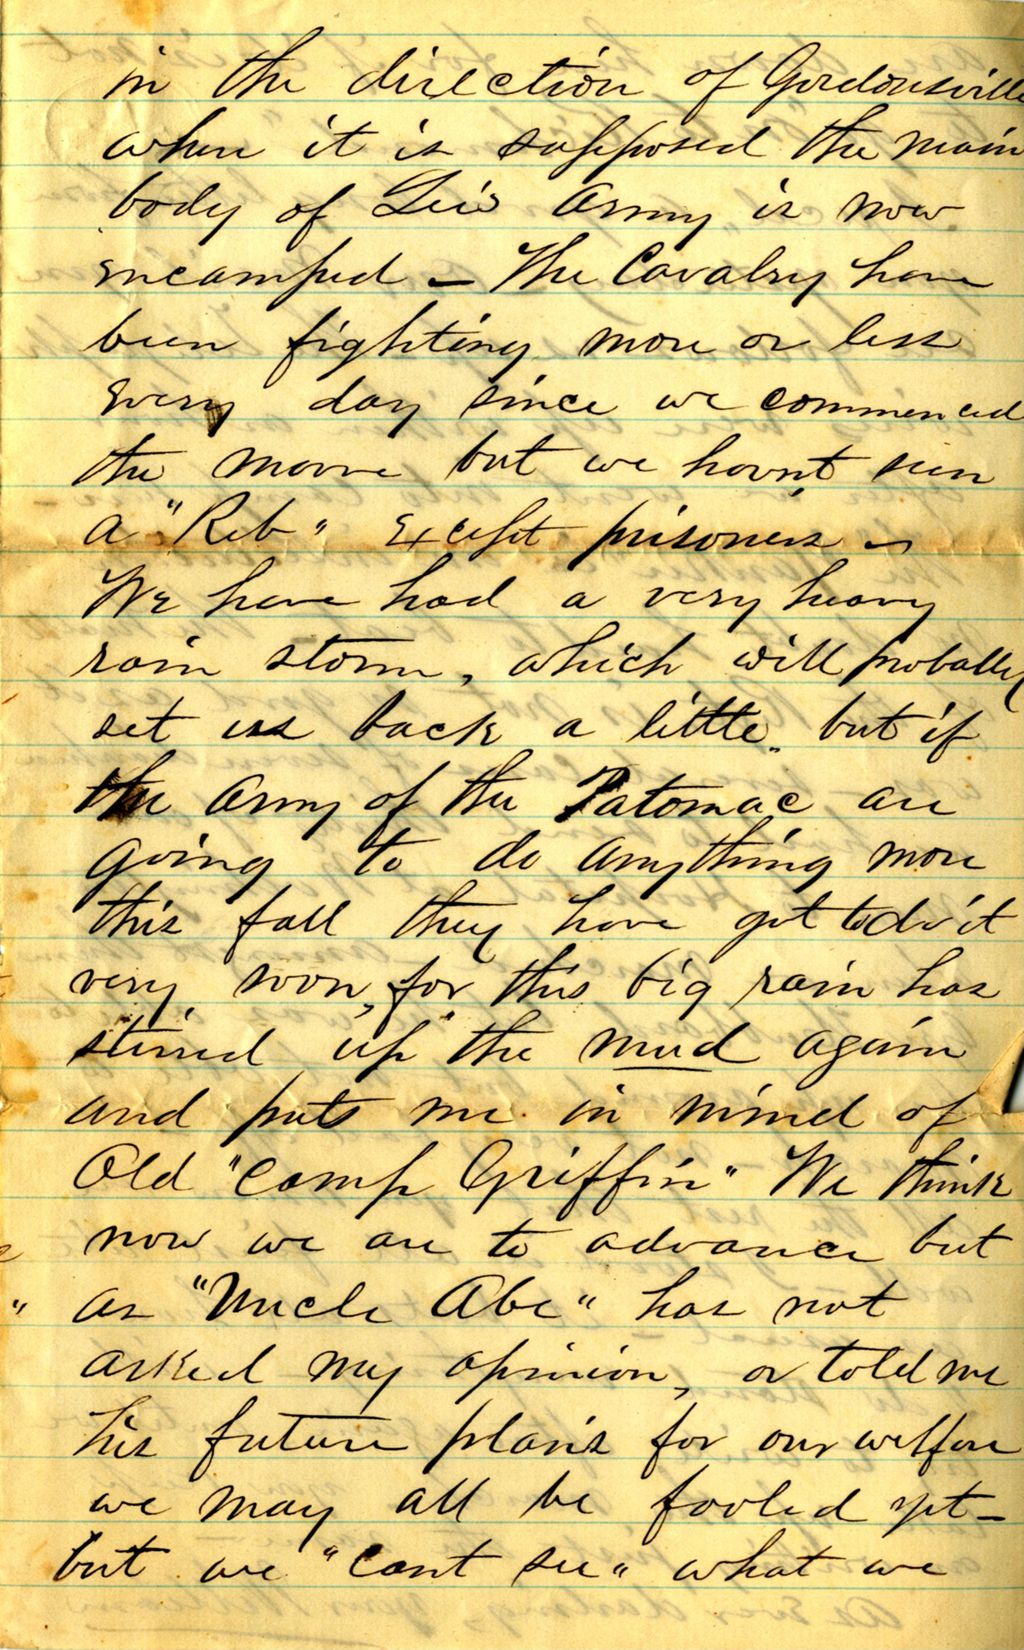 in the direction of Gordonsville
when it is supposed the main
body of Lee's Army is now
encamped - The Cavalry have
been fighting more or less
every day since we commenced
the move but we havn't seen
a "Reb" except prisoners -
We have had a very heavy
rain storm, which will probally
set us back a little, but if
the Army of the Patomac are
going to do anything more
this fall they have got to do it
very soon, for this big rain has
stirred up the mud again
and puts me in mind of
Old "Camp Griffin" We think
now we are to advance but
as "Uncle Abe" has not
asked my opinion, or told me
his future plans for our welfare
we may all be fooled yet -
but we "cant see" what we